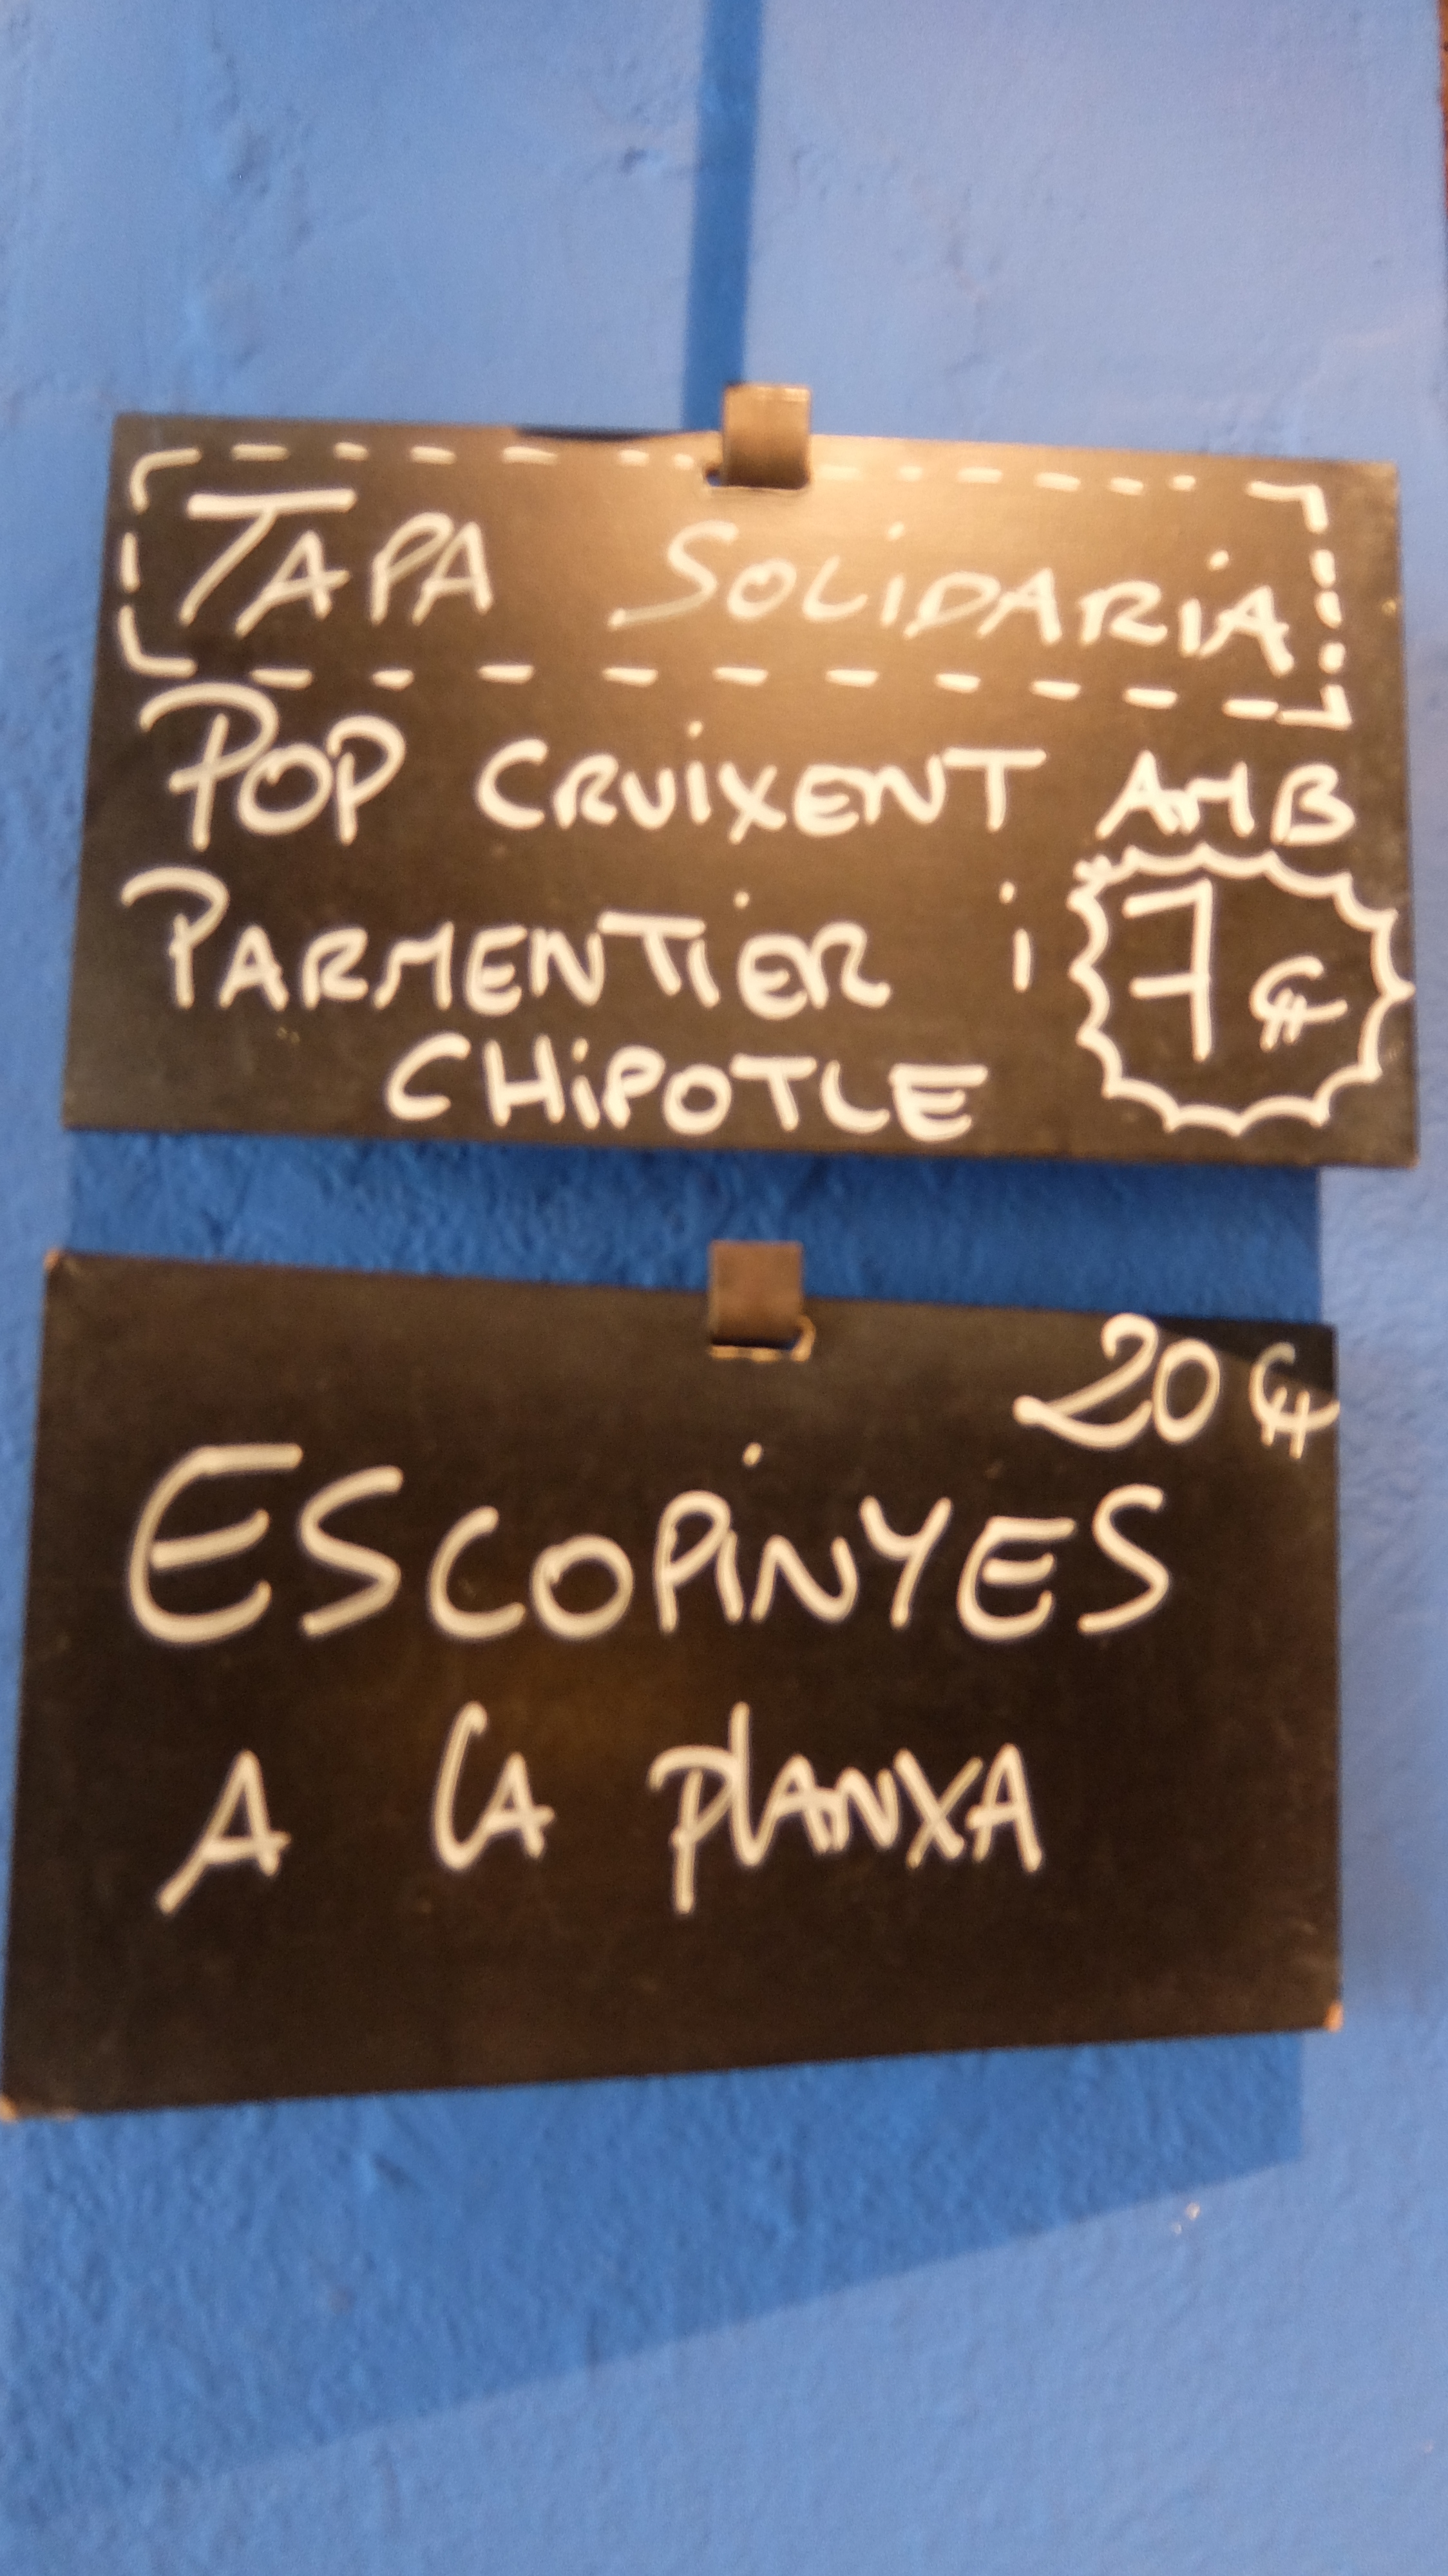 TAPA SOLIDARIA
POP CRUIXENT AMB
PARMENTIER i 7€
CHIPOTLE
20€
ESCOPINYES
A LA PLANXA